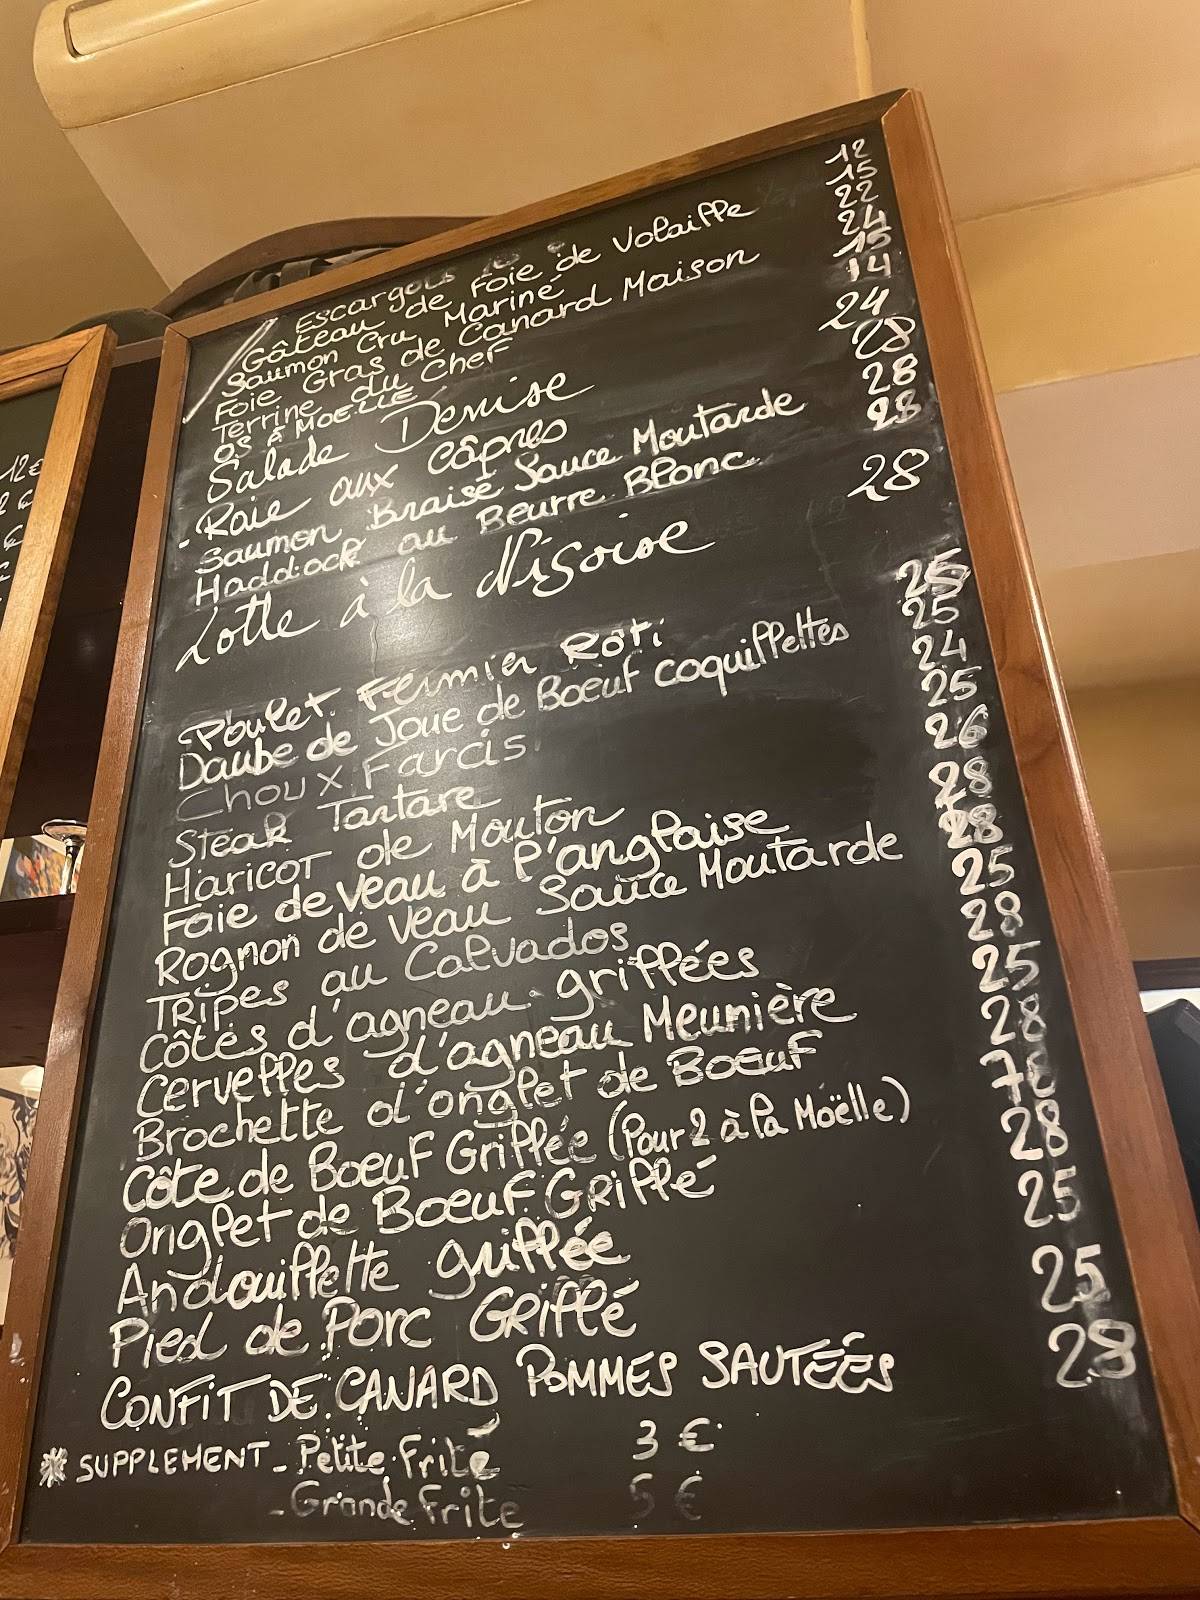 Escargots les 12
Gâteau de Foie de Volaille 15
Saumon Cru Mariné 22
Foie Gras de Canard Maison 24
Terrine du Chef 15
OS A MOELLE 14
Salade Denise 24
- Raie aux câpres 28
Saumon Braisé Sauce Moutarde 28
Haddock au Beurre Blanc 28
Lotte à la Niçoise 28
Poulet Fermier Rôti 25
Daube de Joue de Boeuf coquillettes 25
Choux Farcis 24
Steak Tartare 25
Haricot de Mouton 26
Foie de Veau à l'anglaise 28
Rognon de Veau Sauce Moutarde 28
Tripes au Calvados 25
Côtes d'agneau grillées 28
Cervelles d'agneau Meunière 25
Brochette d'onglet de Boeuf 28
Côte de Boeuf Grillée (Pour 2 à la Moëlle)
Onglet de Boeuf Grillé 28
Andouillette grillée 25
Pied de Porc Grillé 25
CONFIT DE CANARD POMMES SAUTÉES 28
SUPPLEMENT - Petite Frite 3 €
- Grande Frite 5 €
12€
€
€